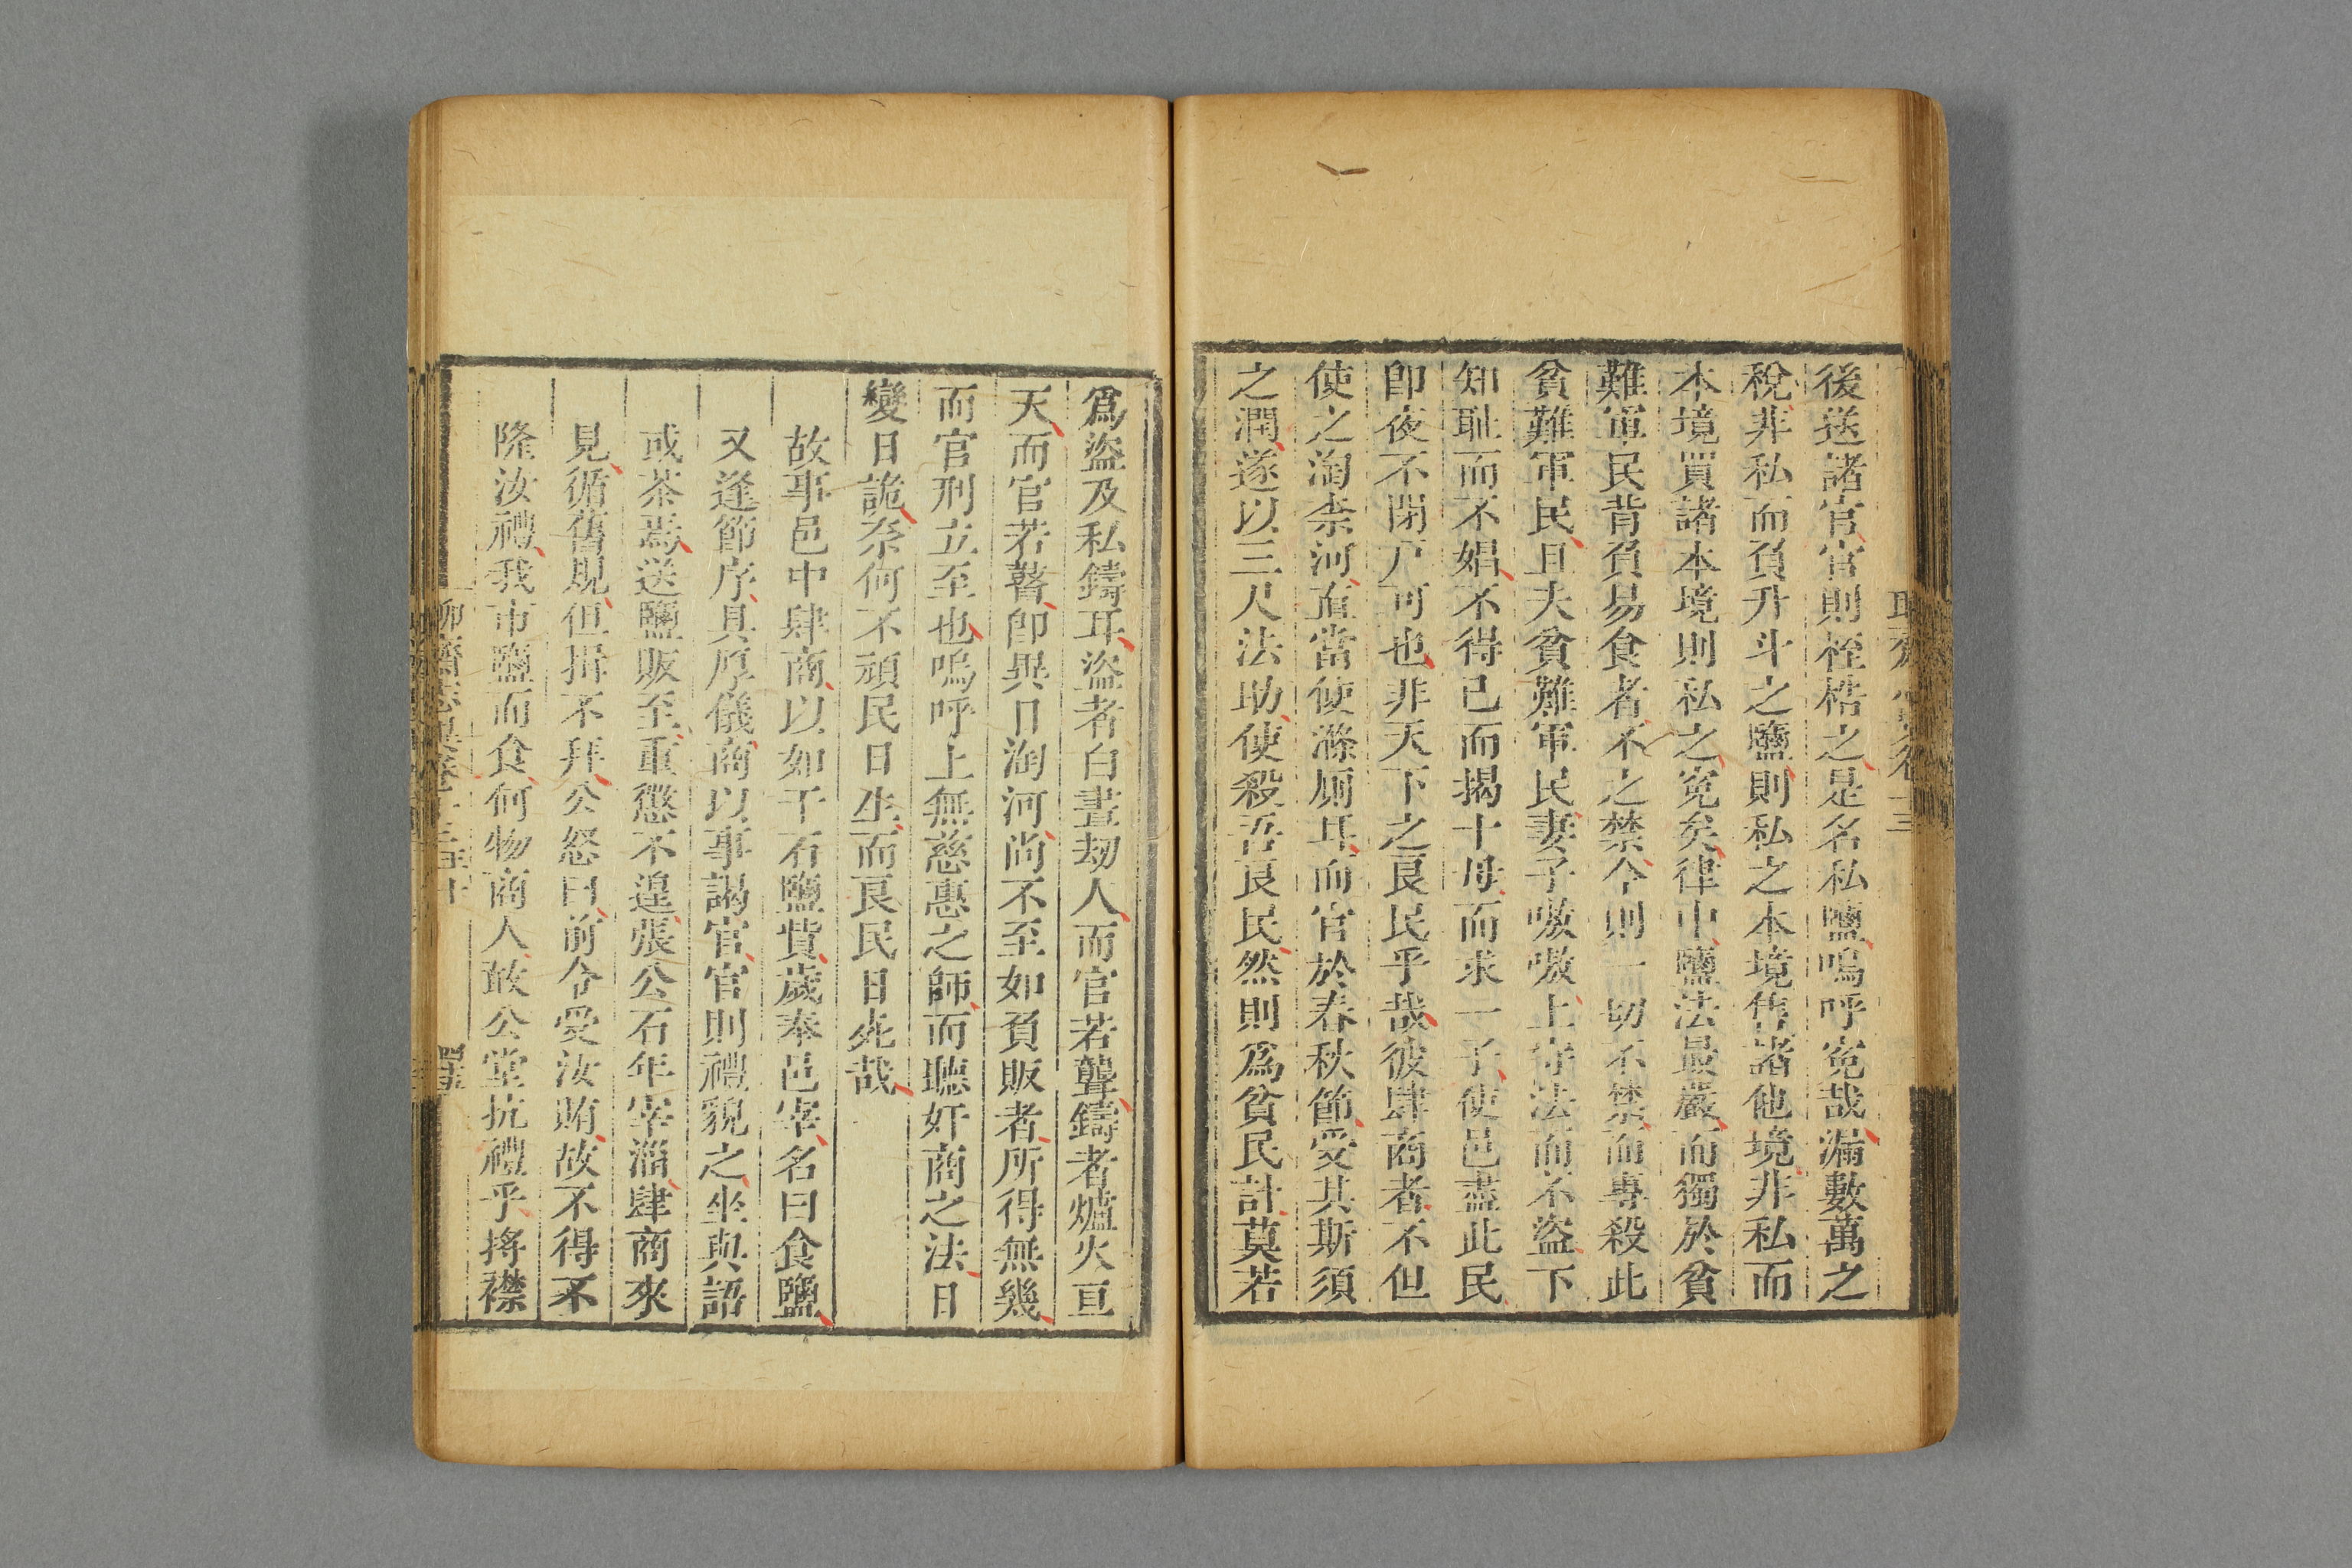 後送諸官官則桎梏之是名私鹽嗚呼寃哉漏數萬之
稅非私而負升斗之鹽則私之本境售諸他境非私而
本境買諸本境則私之寃矣律中鹽法最嚴而獨於貧
難軍民背負易食者不之禁今則一切不禁而專殺此
貧難軍民且夫貧難軍民妻子嗷嗷上守法而不盜下
知耻而不娼不得已而揭十母而求一子使邑盡此民
卽夜不閉戸可也非天下之良民乎哉彼肆商者不但
使之淘柰河直當使滌厠耳而官於春秋節受其斯須
之潤遂以三尺法助使殺吾良民然則爲貧民計莫若
爲盜及私鑄耳盜者白晝刼人而官若聾鑄者爐火亘
天而官若瞽卽異日淘河尚不至如負販者所得無幾
而官刑立至也嗚呼上無慈惠之師而聽奸商之法日
變日詭奈何不頑民日生而良民日死哉
故事邑中肆商以如干石鹽貲歲奉邑宰名曰食鹽
又逢節序具厚儀商以事謁官官則禮貌之坐與語
或茶焉送鹽販至重懲不遑張公石年宰淄肆商來
見循舊規但揖不拜公怒曰前令受汝賄故不得不
隆汝禮我市鹽而食何物商人敢公堂抗禮乎捋襟